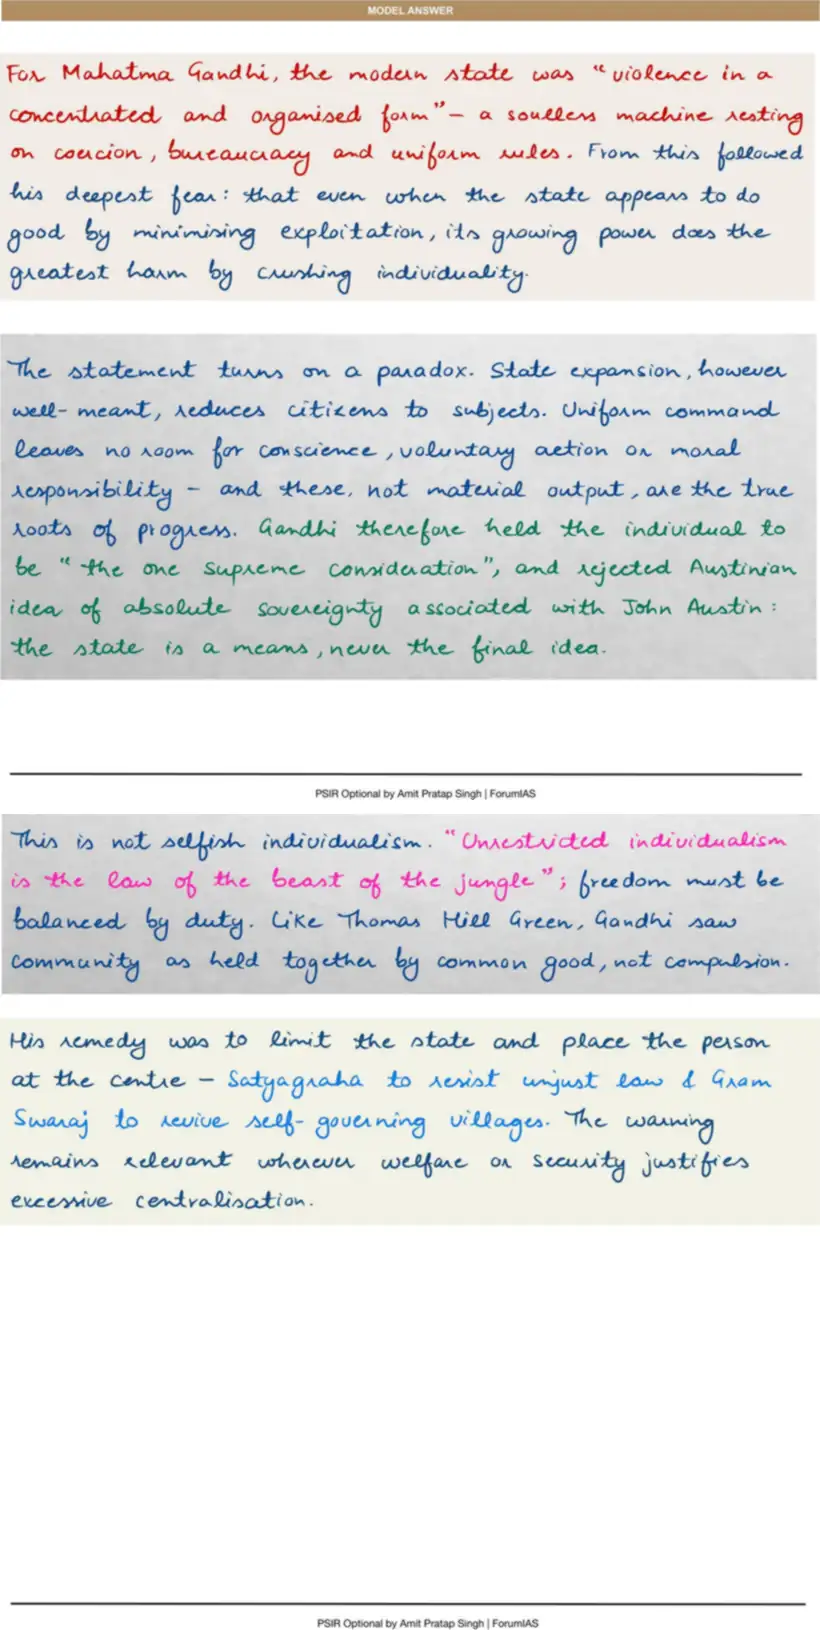 MODEL ANSWER
For Mahatma Gandhi, the modern state was "violence in a
concentrated and organised form" – a soulless machine resting
on coercion, bureaucracy and uniform rules. From this followed
his deepest fear: that even when the state appears to do
good by minimising exploitation, its growing power does the
greatest harm by crushing individuality.
The statement turns on a paradox. State expansion, however
well-meant, reduces citizens to subjects. Uniform command
leaves no room for conscience, voluntary action or moral
responsibility – and these, not material output, are the true
roots of progress. Gandhi therefore held the individual to
be "the one supreme consideration", and rejected Austinian
idea of absolute sovereignty associated with John Austin:
the state is a means, never the final idea.
PSIR Optional by Amit Pratap Singh | ForumIAS
This is not selfish individualism. "Unrestricted individualism
is the law of the beast of the jungle"; freedom must be
balanced by duty. Like Thomas Hill Green, Gandhi saw
community as held together by common good, not compulsion.
His remedy was to limit the state and place the person
at the centre – Satyagraha to resist unjust law & Gram
Swaraj to revive self-governing villages. The warning
remains relevant wherever welfare or security justifies
excessive centralisation.
PSIR Optional by Amit Pratap Singh | ForumIAS